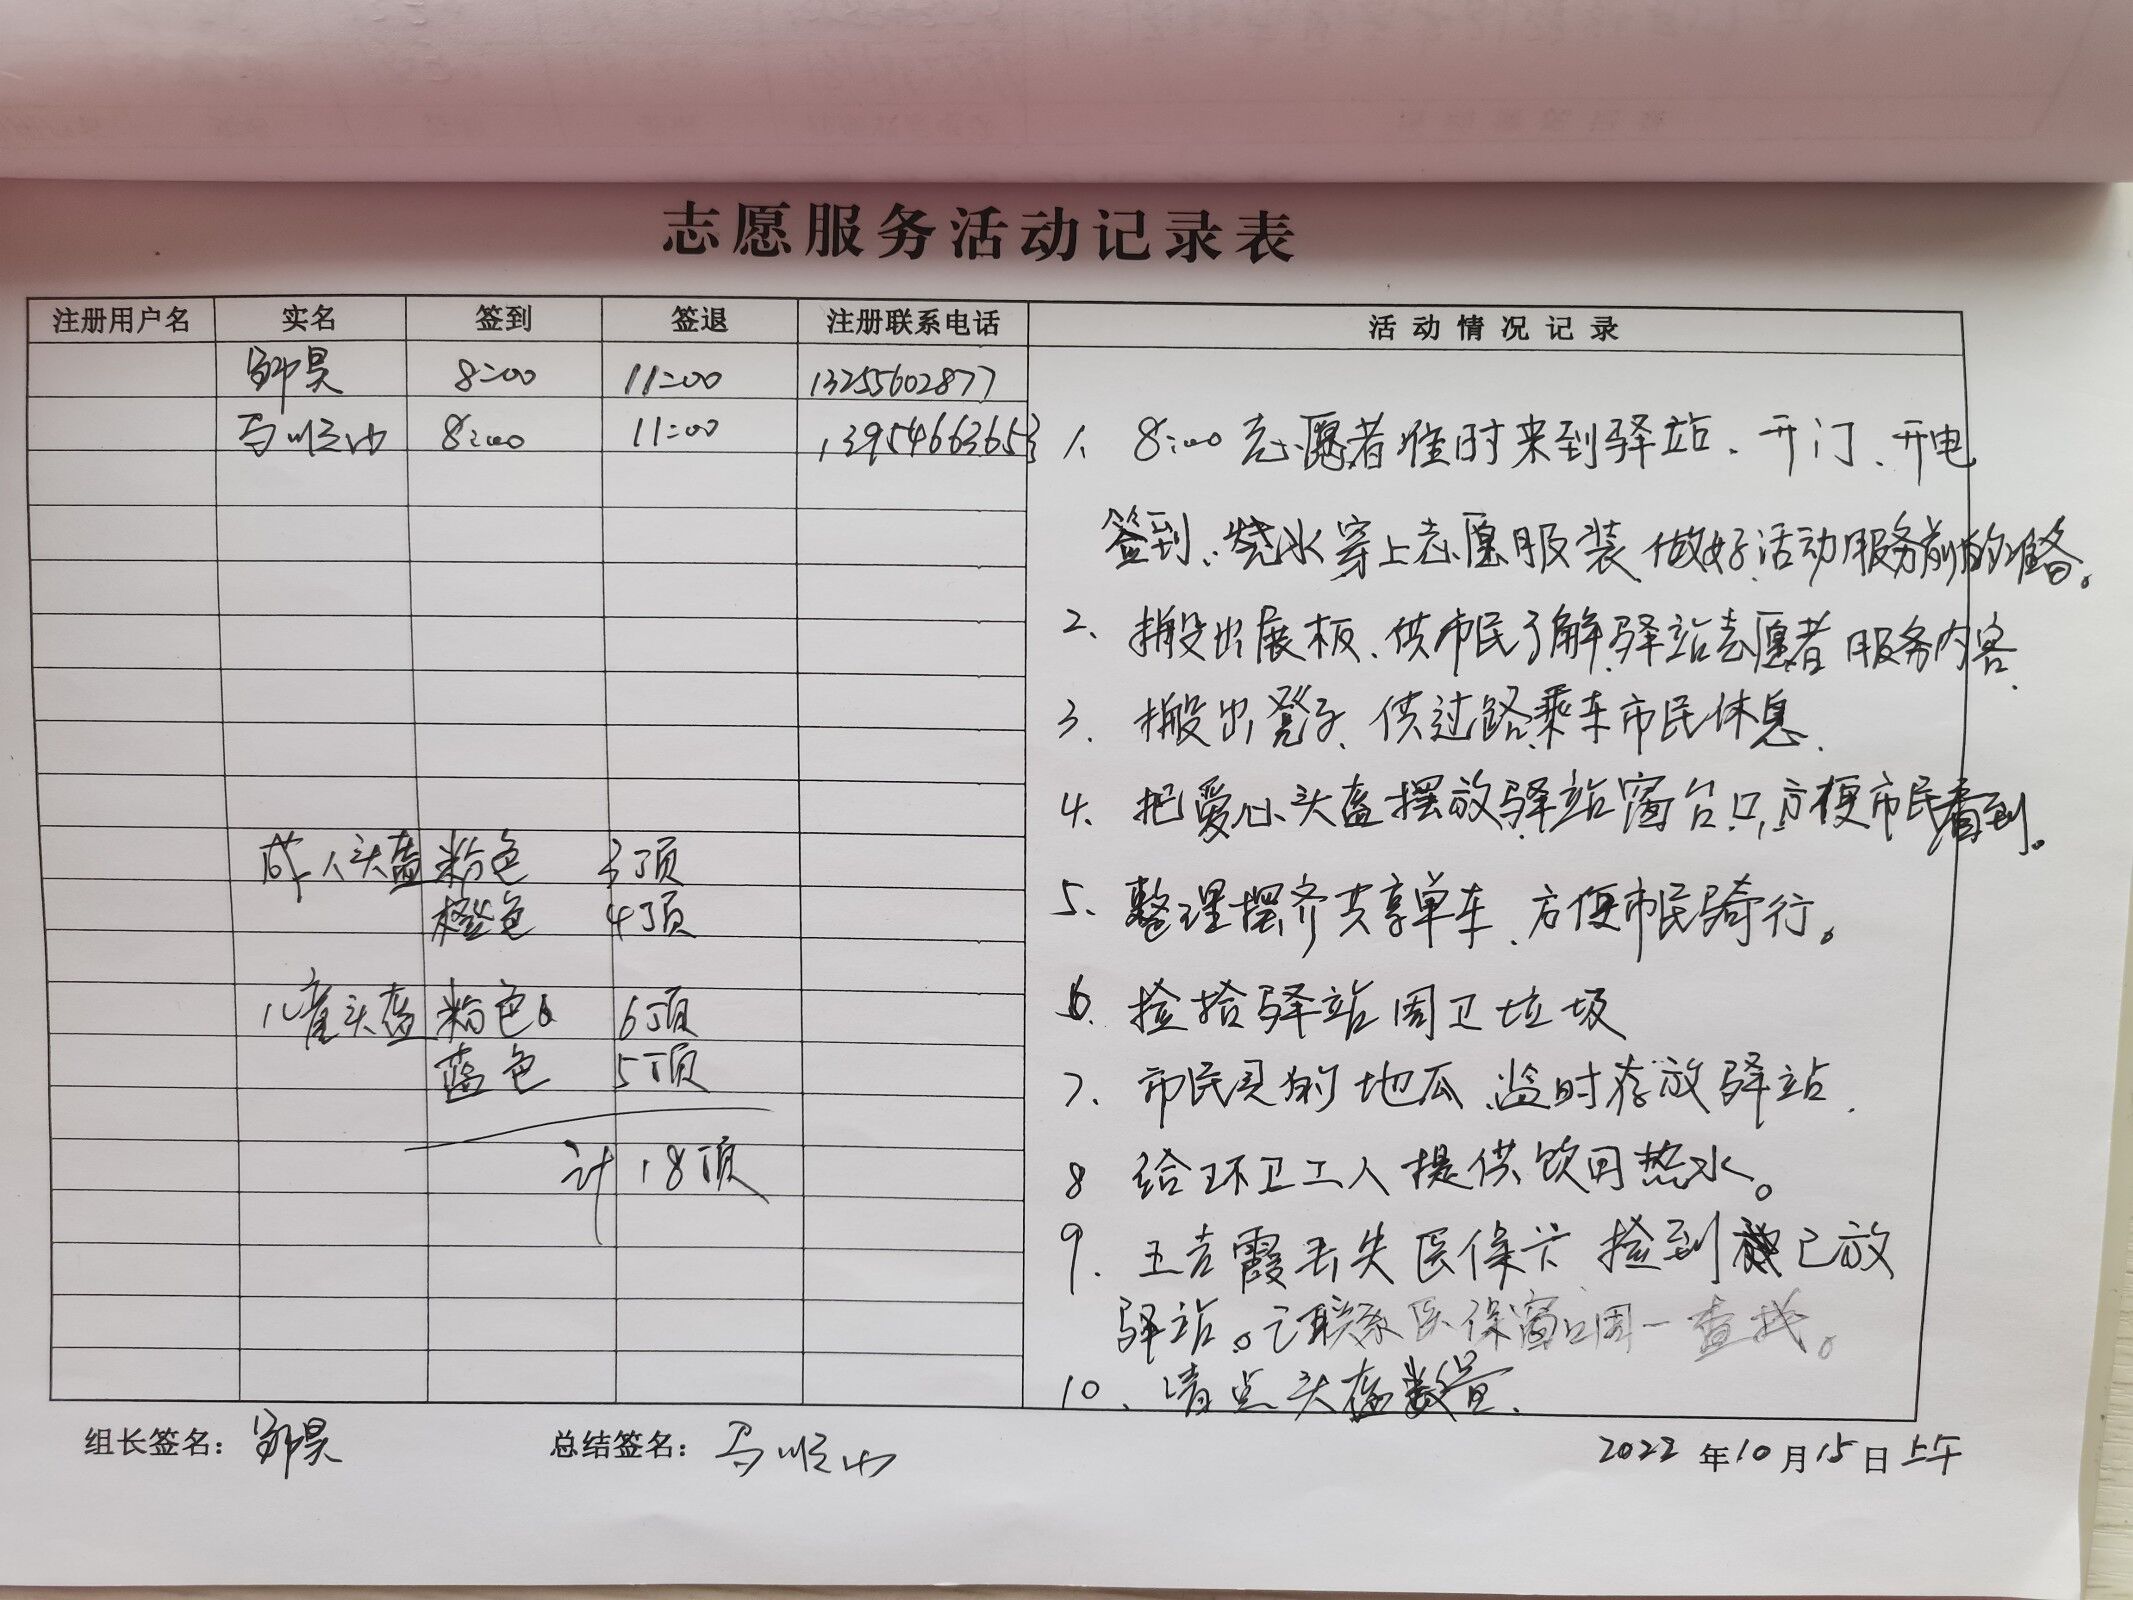 志愿服务活动记录表
注册用户名 实名 签到 签退 注册联系电话 活动情况记录
邹昊 8:00 11:00 13255602877
马顺山 8:00 11:00 13954663653
1、8:00志愿者准时来到驿站、开门、开电
签到、烧水穿上志愿服装 做好活动服务前的准备。
2、搬出展板、供市民了解驿站志愿者服务内容
3、搬出凳子、供过路乘车市民休息
4、把爱心头盔摆放驿站窗台口,方便市民看到。
5、整理摆齐共享单车、方便市民骑行。
6、捡拾驿站周卫垃圾
7、市民买的地瓜 临时存放驿站
8 给环卫工人提供饮用热水。
9、王吉霞丢失医保卡 捡到 已放
驿站。已联系医保窗口周一查找。
10、清点头盔数量
成人头盔 粉色 3顶
橙色 4顶
儿童头盔 粉色 6顶
蓝色 5顶
计 18顶
组长签名:邹昊 总结签名:马顺山 2022年10月15日上午